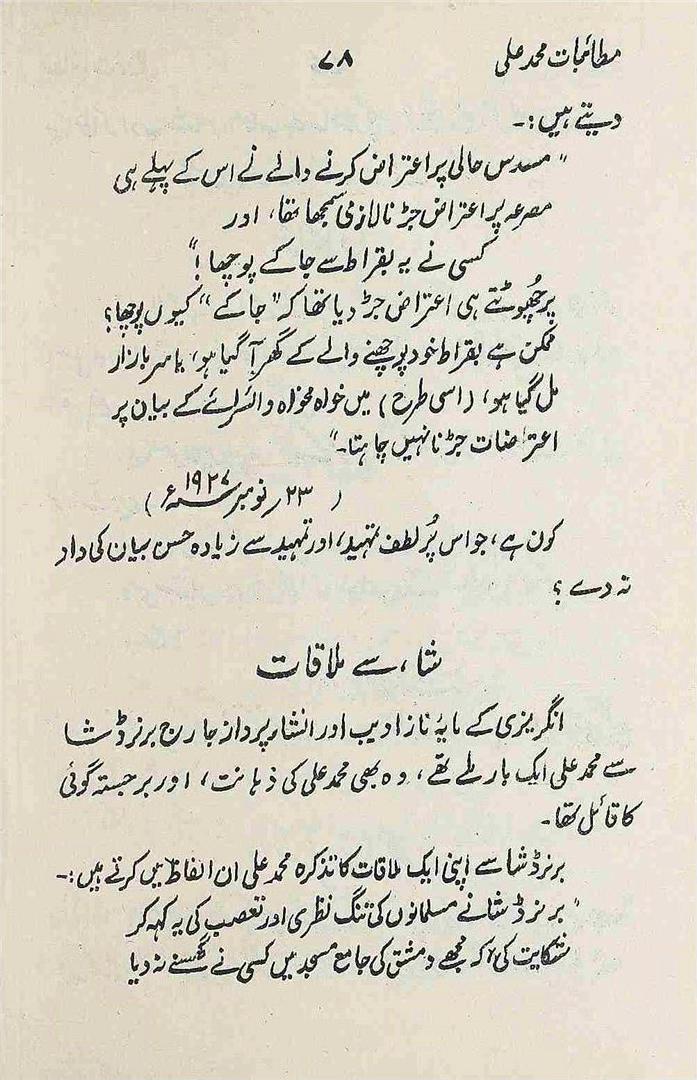 مطائبات محمد علی ۷۸
دیتے ہیں:۔
"مسدس حالی پر اعتراض کرنے والے نے اس کے پہلے ہی
مصرعہ پر اعتراض جڑنا لازمی سمجھا تھا، اور
کسی نے یہ بقراط سے جا کے پوچھا!"
پر چھوٹتے ہی اعتراض جڑ دیا تھا کہ "جا کے" کیوں پوچھا؟
ممکن ہے بقراط خود پوچھنے والے کے گھر آ گیا ہو، یا سر بازار
مل گیا ہو، (اسی طرح) میں خواہ مخواہ وائسرائے کے بیان پر
اعتراضات جڑنا نہیں چاہتا۔"
(۲۳ نومبر ۱۹۲۷ء)
کون ہے، جو اس پُر لطف تمہید، اور تمہید سے زیادہ حسن بیان کی داد
نہ دے؟
شاء سے ملاقات
انگریزی کے مایۂ ناز ادیب اور انشاء پرداز جارج برنرڈ شا
سے محمد علی ایک بار ملے تھے، وہ بھی محمد علی کی ذہانت، اور برجستہ گوئی
کا قائل تھا۔
برنرڈ شا سے اپنی ایک ملاقات کا تذکرہ محمد علی ان الفاظ میں کرتے ہیں:۔
"برنرڈ شا نے مسلمانوں کی تنگ نظری اور تعصب کی یہ کہہ کر
شکایت کی، کہ مجھے دمشق کی جامع مسجد میں کسی نے گھسنے نہ دیا